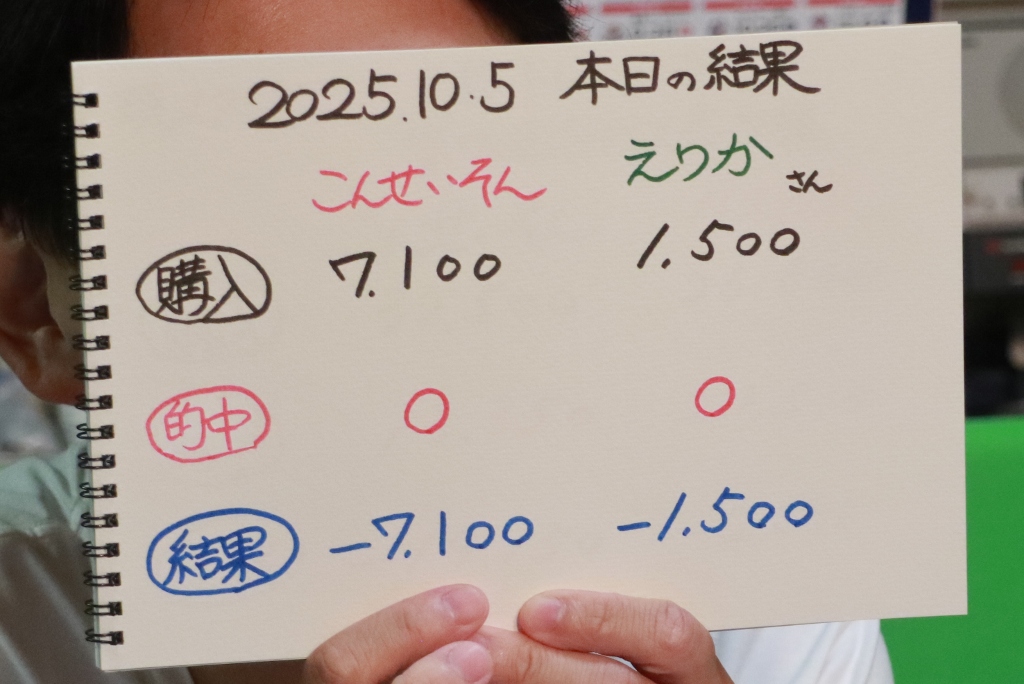 2025.10.5 本日の結果
こんせいそん えりかさん
購入 7.100 1.500
的中 0 0
結果 -7.100 -1.500